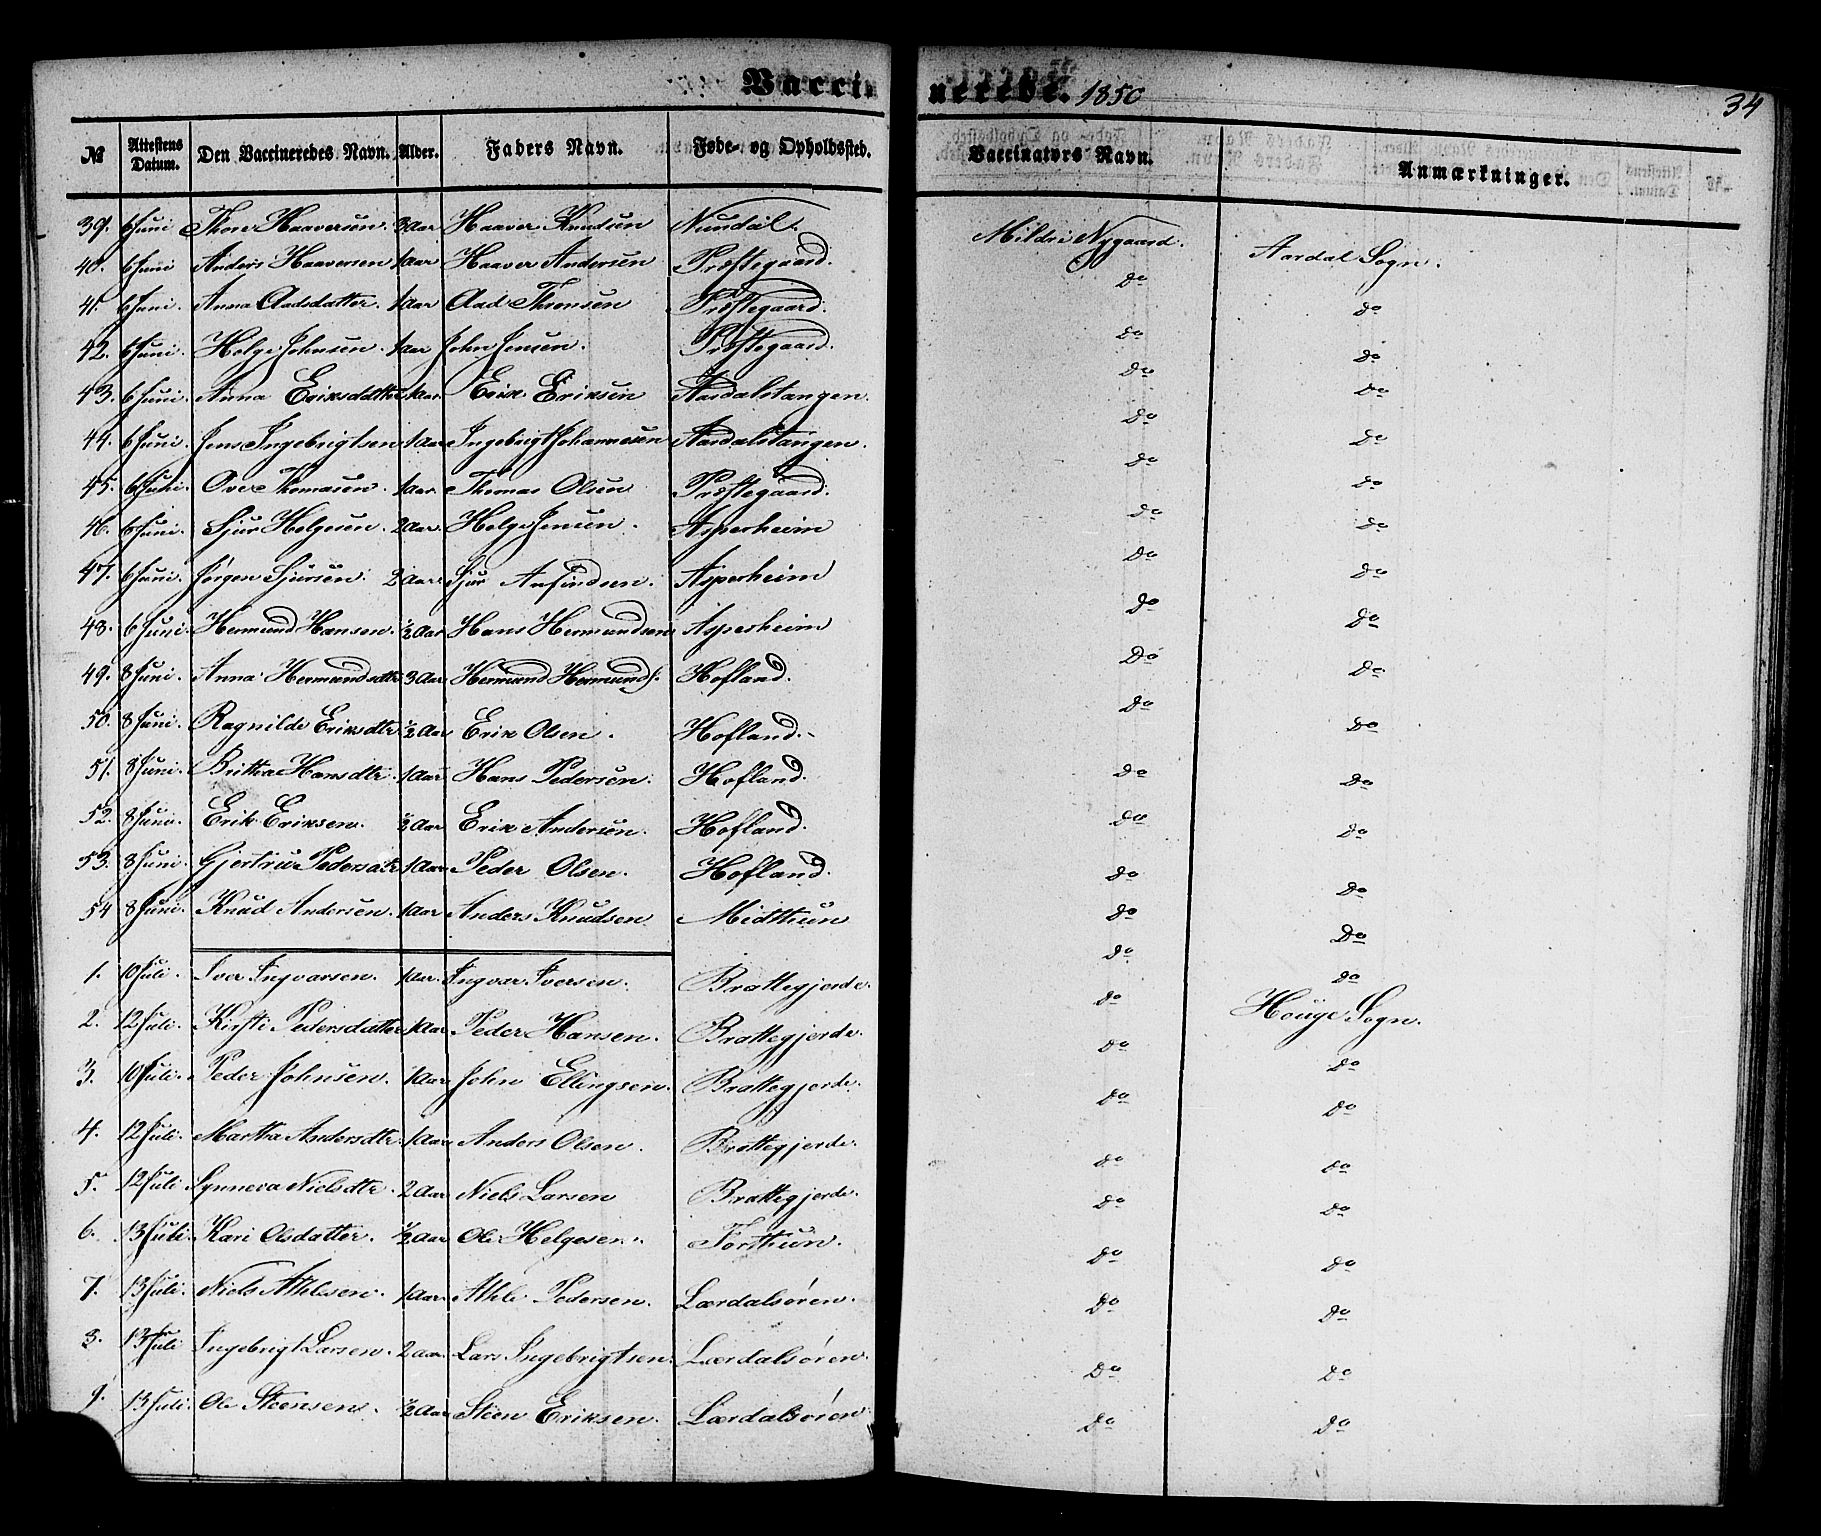 Vaccinerede. 1850
34
№ Attestens Datum. Den Vaccineredes Navn. Alder. Faders Navn. Føde- og Opholdssted. Vaccinators Navn. Anmærkninger.
39. 6 Juni Thore Haaversen 3 Aar Haaver Knudsen Nundal. Mildri Nygaard. Aardal Sogn.
40. 6 Juni Anders Haaversen 1 Aar Haaver Andersen Præstegaard. Do Do
41. 6 Juni. Anna Aadsdatter. 1 Aar Aad Thronsen Præstegaard. Do Do
42. 6 Juni. Helge Johnsen. 1 Aar John Jensen. Præstegaard. Do Do
43. 6 Juni. Anna Eriksdatter 1 Aar Erik Eriksen Aardalstangen. Do Do
44. 6 Juni. Jens Ingebrigtsen 1 Aar Ingebrigt Johannesen Aardalstangen. Do Do
45. 6 Juni. Ove Thomasen. 1 Aar. Thomas Olsen Præstegaard. Do Do
46. 6 Juni. Sjur Helgesen. 2 Aar. Helge Jensen. Asperheim Do Do
47. 6 Juni. Jørgen Sjursen. 2 Aar. Sjur Anfindsen. Asperheim Do Do
48. 6 Juni. Hermund Hansen. ½ Aar Hans Hermundsen Asperheim Do Do
49. 8 Juni. Anna Hermundsdtr 3 Aar Hermund Hermunds. Hofland. Do Do
50. 8 Juni. Ragnilde Eriksdtr ½ Aar Erik Olsen. Hofland. Do Do
51. 8 Juni. Brittha Hansdtr. 1 Aar Hans Pedersen. Hofland. Do Do
52. 8 Juni. Erik Eriksen. ½ Aar Erik Andersen. Hofland. Do Do
53. 8 Juni. Gjertrue Pedersdtr 1 Aar Peder Olsen. Hofland. Do Do
54 8 Juni. Knud Andersen. 1 Aar Anders Knudsen. Midthun Do Do
1. 10 Juli. Iver Ingvarsen. 1 Aar. Ingvar Iversen. Brattegjerde. Do Do
2. 12 Juli. Kirsti Pedersdatter 1 Aar Peder Hansen. Brattegjerde. Do Houge Sogn.
3. 10 Juli. Peder Johnsen. 1 Aar John Ellingsen. Brattegjerde. Do Do
4. 12 Juli. Martha Andersdtr. 1 Aar Anders Olsen. Brattegjerde. Do Do
5. 12 Juli Synneva Nielsdtr 2 Aar Niels Larsen Brattegjerde. Do Do
6. 13 Juli. Kari Olsdatter. ½ Aar Ole Helgesen. Forthun. Do Do
7. 13 Juli. Niels Athlesen. 1 Aar. Athle Pedersen. Lærdalsøren. Do Do
8. 13 Juli Ingebrigt Larsen. 2 Aar. Lars Ingebrigtsen. Lærdalsøren. Do Do
9. 13 Juli. Ole Steensen. ½ Aar Steen Eriksen. Lærdalsøren Do Do
Do Do